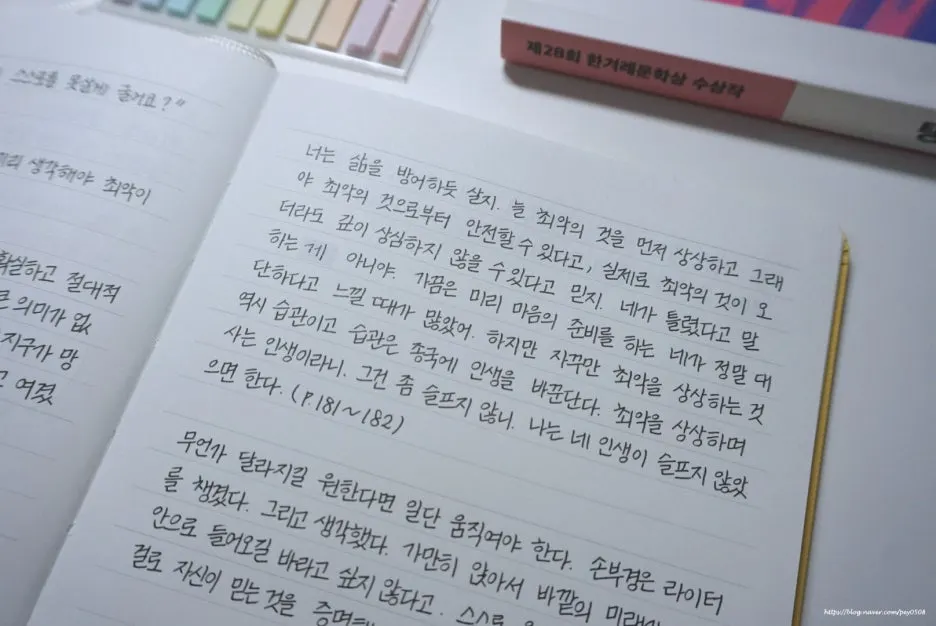 스스로를 못살게 굴어요?"
미리 생각해야 최악이
확실하고 절대적
큰 의미가 없
지구가 망
고 여겼
제28회 한겨레문학상 수상작
너는 삶을 방어하듯 살지. 늘 최악의 것을 먼저 상상하고 그래
야 최악의 것으로부터 안전할 수 있다고, 실제로 최악의 것이 오
더라도 깊이 상심하지 않을 수 있다고 믿지. 네가 틀렸다고 말
하는 게 아니야. 가끔은 미리 마음의 준비를 하는 네가 정말 대
단하다고 느낄 때가 많았어. 하지만 자꾸만 최악을 상상하는 것
역시 습관이고 습관은 종국에 인생을 바꾼단다. 최악을 상상하며
사는 인생이라니. 그건 좀 슬프지 않니. 나는 네 인생이 슬프지 않았
으면 한다. (P.181~182)
무언가 달라지길 원한다면 일단 움직여야 한다. 손부경은 라이터
를 챙겼다. 그리고 생각했다. 가만히 앉아서 바깥의 미래가
안으로 들어오길 바라고 싶지 않다고. 스스로
걸로 자신이 믿는 것을
https://blog.naver.com/pey0508